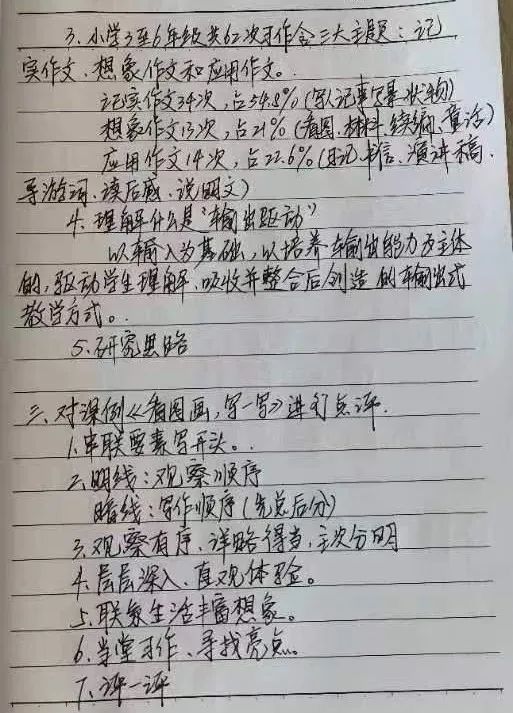 3、小学3至6年级共62次习作含三大主题：记
实作文、想象作文和应用作文。
记实作文34次，占54.8%(写人记事写景状物)
想象作文13次，占21%(看图、材料、续编、童话)
应用作文14次，占22.6%(日记、书信、演讲稿、
导游词、读后感、说明文)
4、理解什么是"输出驱动"
以输入为基础，以培养输出能力为主体
的，驱动学生理解、吸收并整合后创造的输出式
教学方式。
5、研究思路
三、对课例《看图画，写一写》进行点评.
1、串联要素写开头。
2、明线：观察顺序
暗线：写作顺序(先总后分)
3、观察有序、详略得当、主次分明
4、层层深入、直观体验。
5、联系生活丰富想象。
6、当堂习作、寻找亮点。
7、评一评